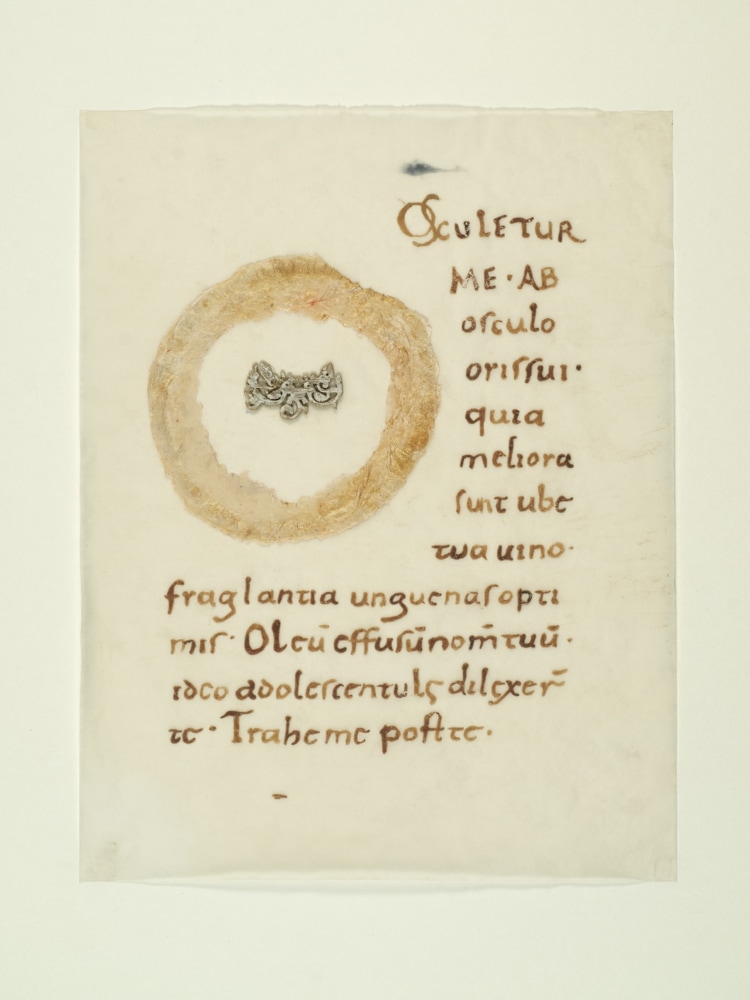 OSCULETUR
ME · AB
oſculo
oriſſui·
quia
meliora
ſunt ube
tua uino·
fraglantia unguenaſopti
miſ· Oleū effuſūnom̄tuū·
ideo adoleſcentulę dilexer̄
te · Traheme poſt te·